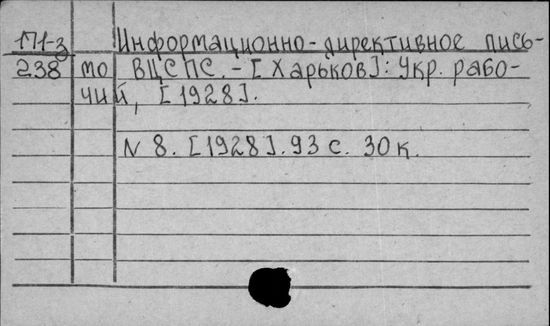 171-з Информационно-директивное пись-
238 мо ВЦСПС. - [Харьков]: Укр. рабо-
чий, [1928].
N 8. [1928]. 93 с. 30 к.